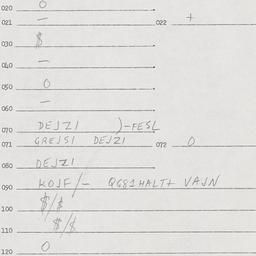 020 O
021 — 022 +
030 $
040 —
050 O
060 —
070 DEJZI )-FESL
071 GREJSI DEJZI 072 O
080 DEJZI
090 KOJF/- Q681HALT+ VAJN
100 $/$
110 $/$
120 O